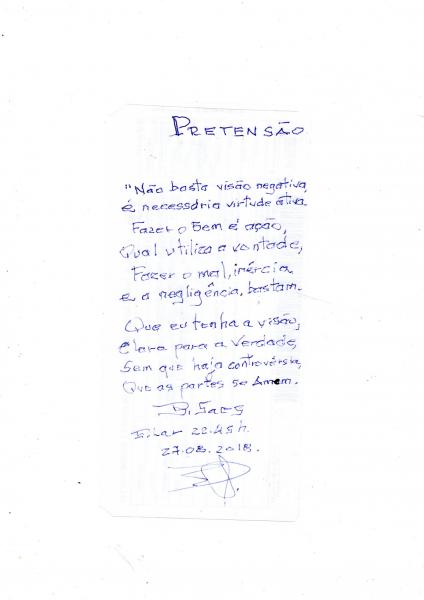 PRETENSÃO
"Não basta visão negativa,
é necessária virtude ativa.
Fazer o bem é ação,
Qual utiliza a vontade,
Fazer o mal, inércia
e a negligência, bastam.
Que eu tenha a visão,
Clara para a verdade,
Sem que haja controvérsia,
Que as partes se amem.
22:45h.
27.08.2018.